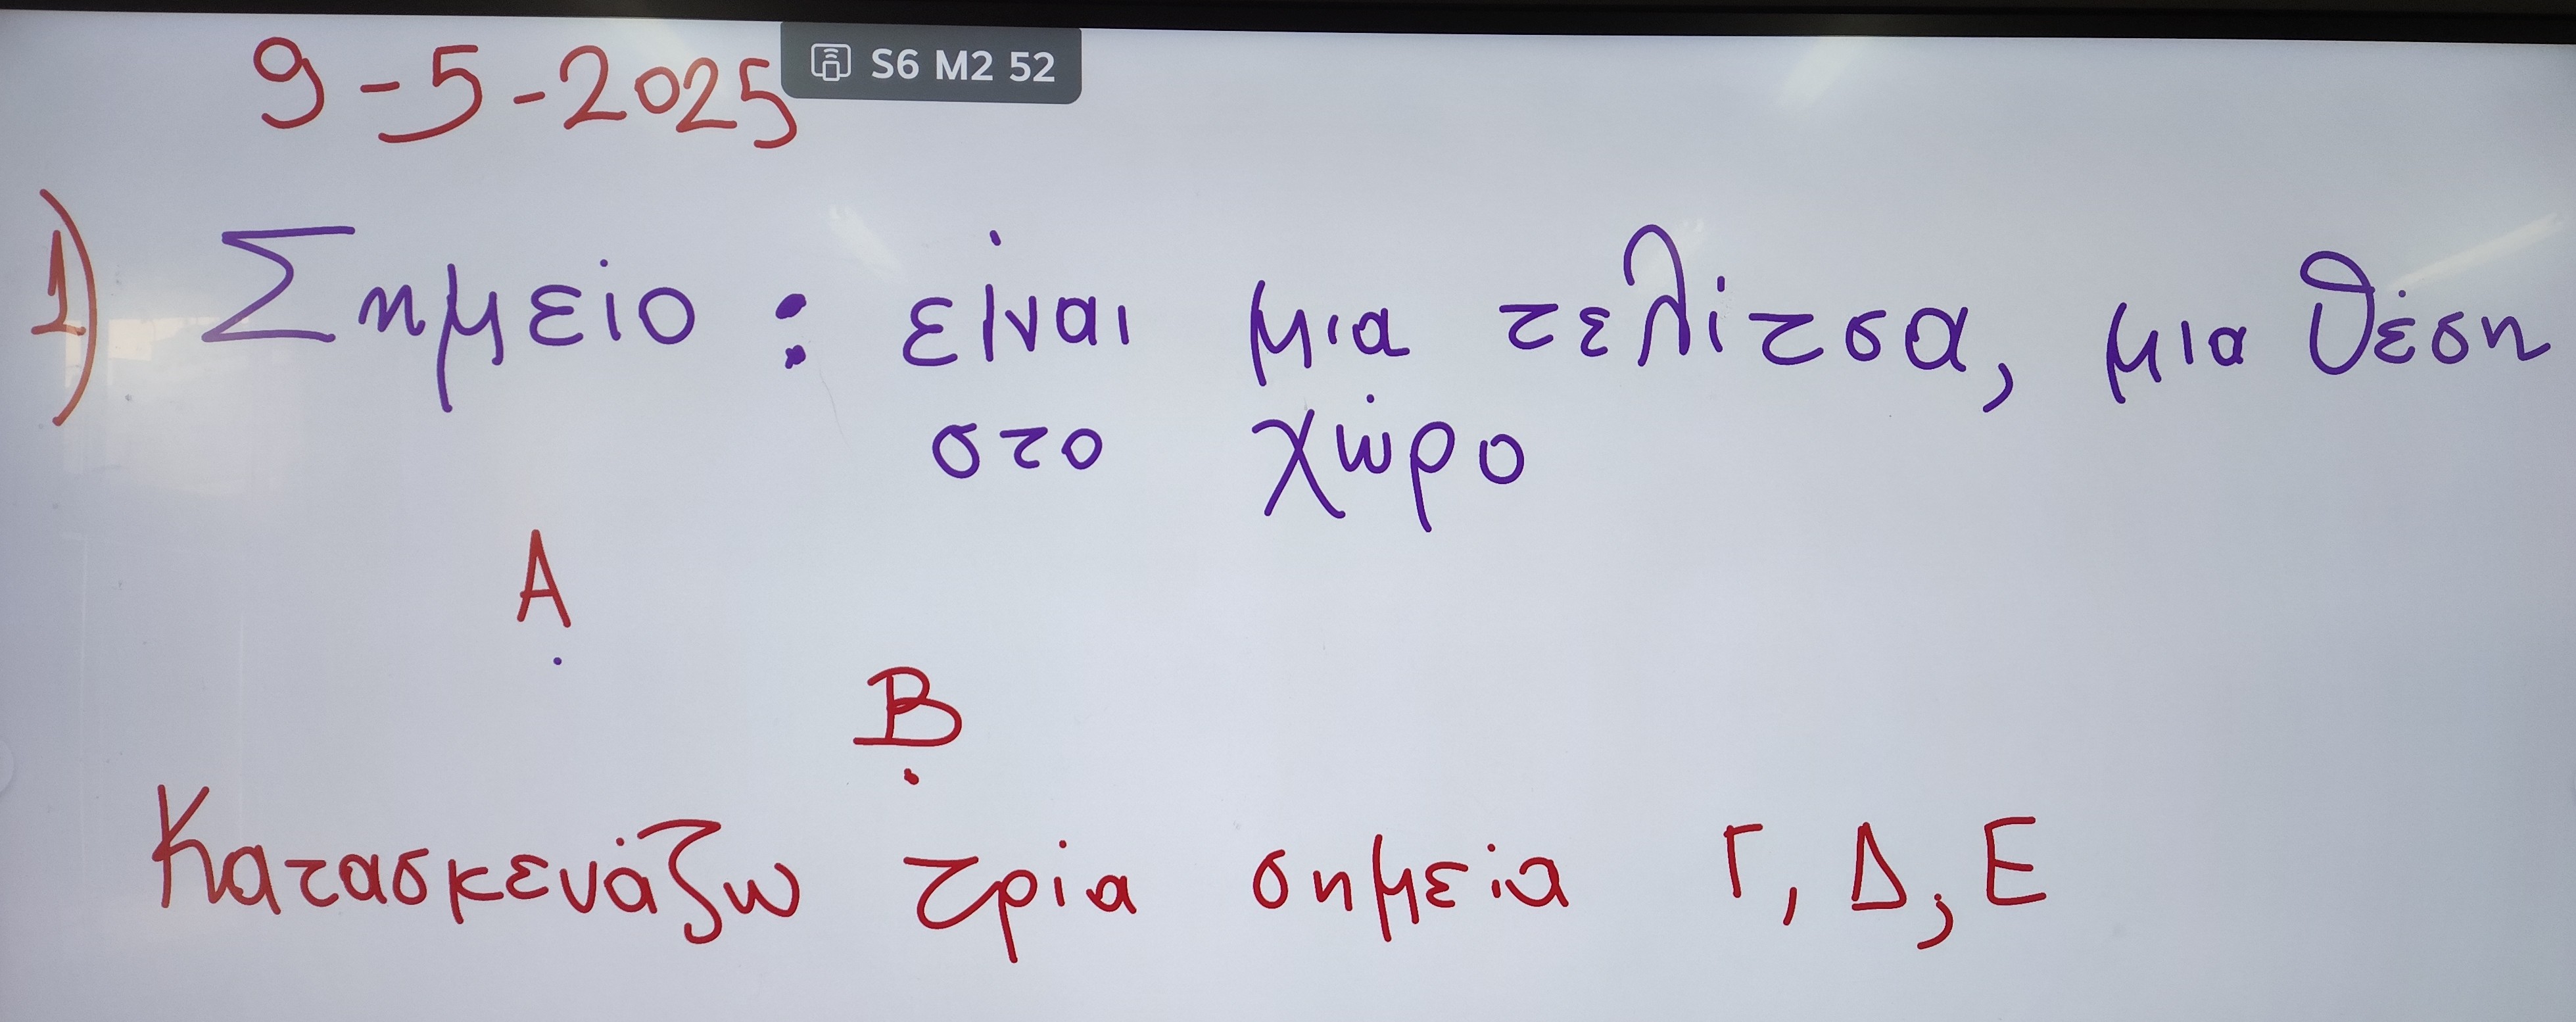 9-5-2025
S6 M2 52
1) Σημείο : είναι μια τελίτσα, μια θέση
στο χώρο
Α
Β
Κατασκευάζω τρία σημεία Γ, Δ, Ε